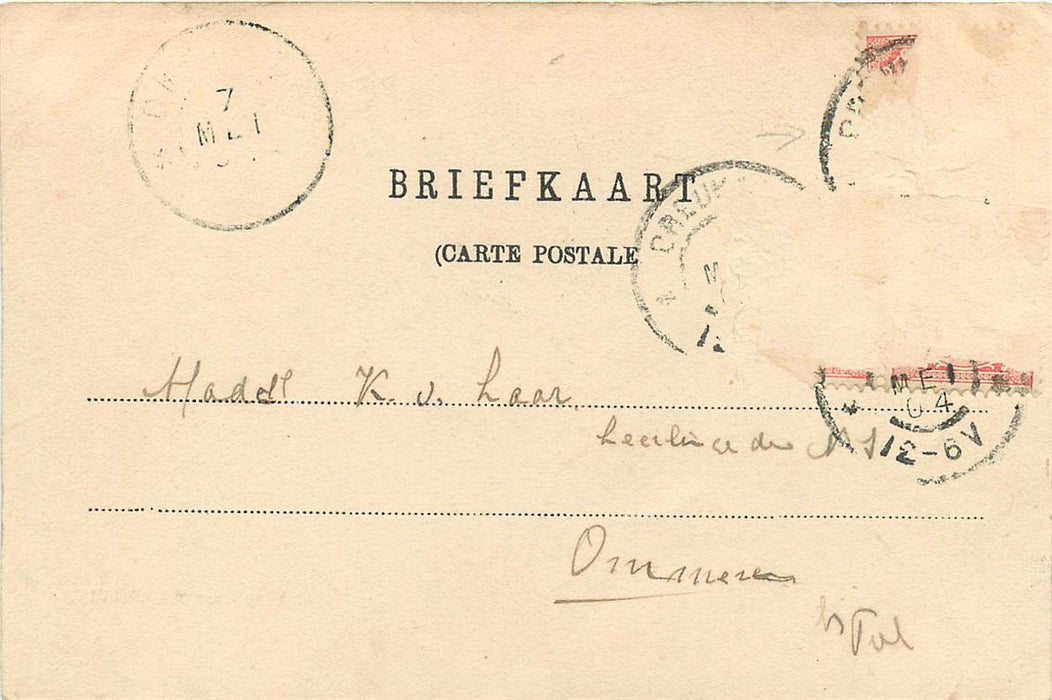 7
MEI
BRIEFKAART
(CARTE POSTALE
CREU
M
12
Madll K. v. Laar.
Leerlinge der N S
MEI
04
12-6V
Ommeren
bij Tiel